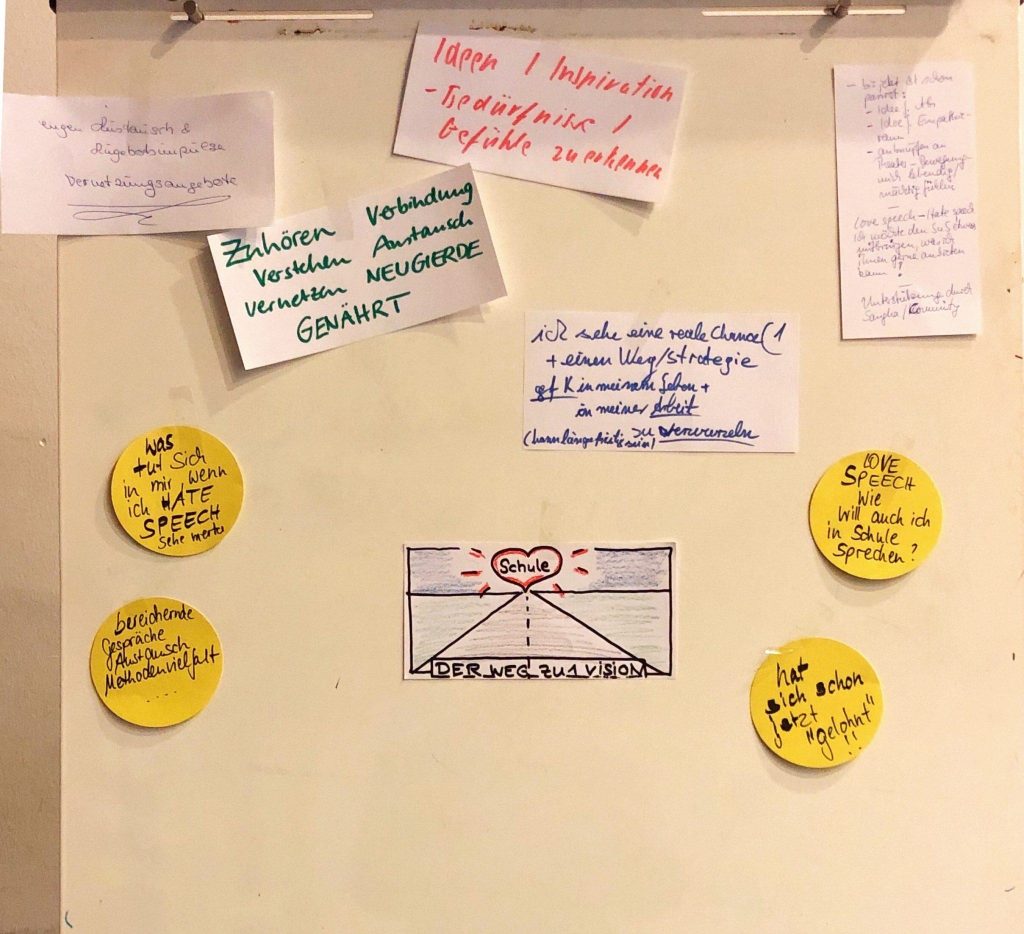 Ideen / Inspiration
- Bedürfnisse /
Gefühle zu erkennen
engen Austausch &
Vernetzungsangebote
Zuhören Verbindung
Verstehen Austausch
vernetzen NEUGIERDE
GENÄHRT
- bis jetzt ist schon
passiert:
- Idee f.
- Idee f.
- anknüpfen an
mich lebendig/
fühlen
Love speech - Hate speech
ich möchte den SuS etwas
mitbringen, was ich
ihnen gerne anbieten
kann!
Unterstützung durch
Sangha/Community
ich sehe eine reale Chance (1
+ einen Weg/Strategie
gfK in meinem Leben +
in meiner Arbeit
zu verwurzeln
(kann längerfristig sein)
was
tut sich
in mir, wenn
ich HATE
SPEECH
sehe merke
LOVE
SPEECH
Wie
will auch ich
in Schule
sprechen?
Schule
DER WEG ZU1 VISION
bereichernde
Gespräche
Austausch
Methodenvielfalt
....
hat
sich schon
jetzt
"gelohnt"
!!